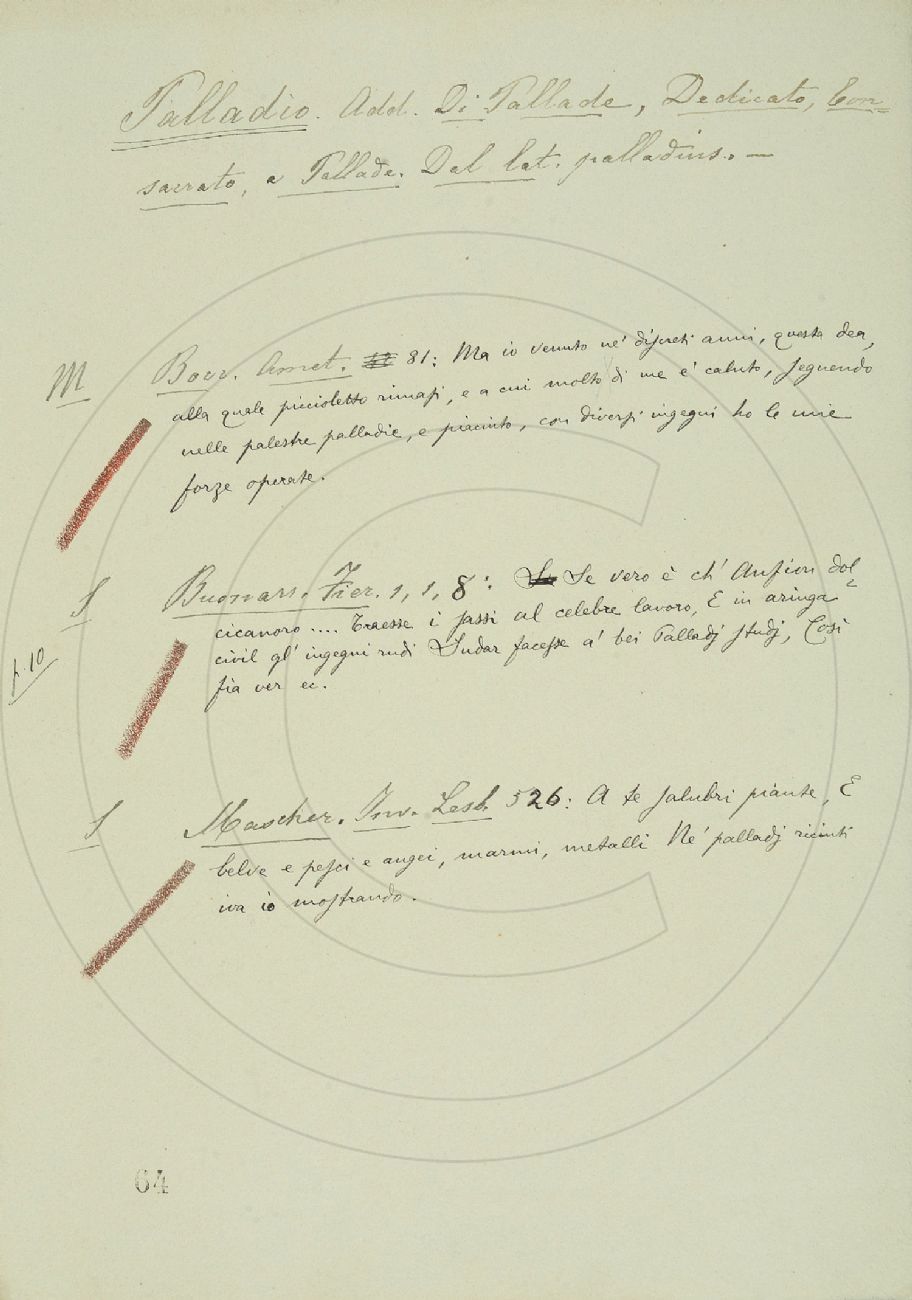 Palladio. Add. Di Pallade, Dedicato, Con-
sacrato, a Pallade. Dal lat. palladius. —
M
Bocc. Amet. 81: Ma io venuto ne' discreti anni, questa dea,
alla quale piccioletto rimasi, e a cui molto di me è caluto, seguendo
nelle palestre palladie, e piacinto, con diversi ingegni ho le mie
forze operate.
S
Buonarr. Fier. 1, 1, 8: Se vero è ch' Anfion dol-
cicanoro .... Traesse i sassi al celebre lavoro, E in aringa
civil gl' ingegni rudi Sudar facesse a' bei Palladj studj, Così
fia ver ec.
p. 10
S
Mascher. Inv. Lesb. 526: A te salubri piante, E
belve e pesci e augei, marmi, metalli Ne' palladj ricinti
iva io mostrando.
64